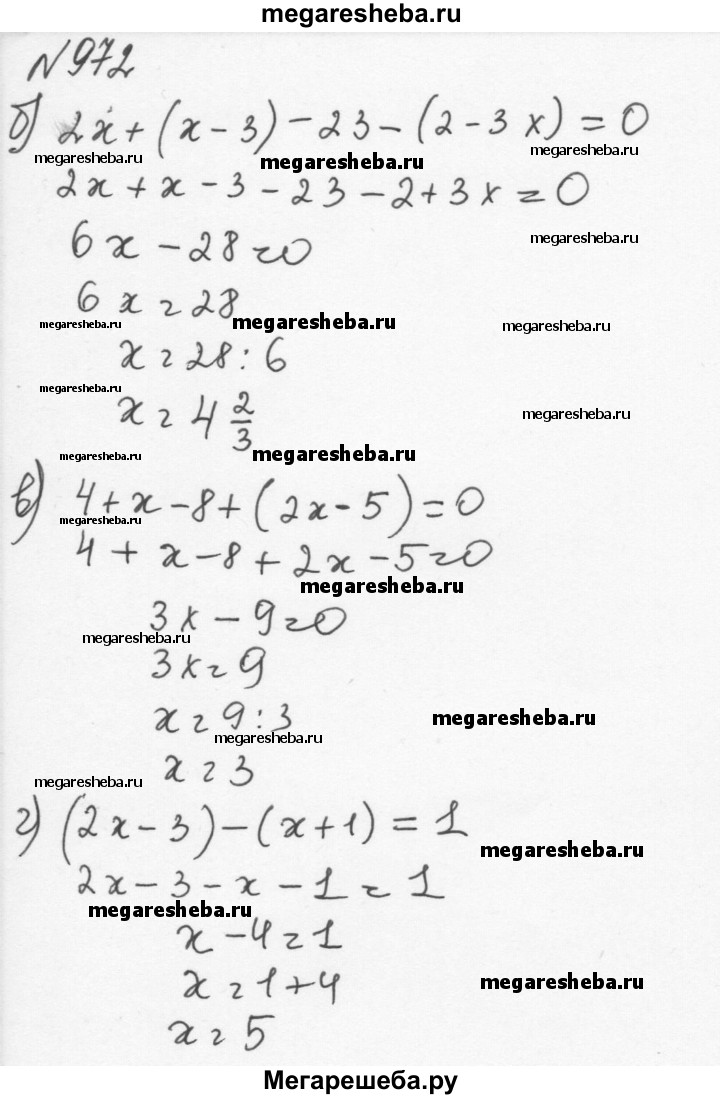 megaresheba.ru
№972
б) 2x + (x - 3) - 23 - (2 - 3x) = 0
megaresheba.ru megaresheba.ru megaresheba.ru
2x + x - 3 - 23 - 2 + 3x = 0
6x - 28 = 0
megaresheba.ru
6x = 28
megaresheba.ru megaresheba.ru megaresheba.ru
x = 28 : 6
megaresheba.ru
x = 4 2/3
megaresheba.ru
megaresheba.ru megaresheba.ru
в) 4 + x - 8 + (2x - 5) = 0
megaresheba.ru
4 + x - 8 + 2x - 5 = 0
megaresheba.ru
3x - 9 = 0
megaresheba.ru
3x = 9
x = 9 : 3
megaresheba.ru
megaresheba.ru
x = 3
megaresheba.ru
г) (2x - 3) - (x + 1) = 1
megaresheba.ru
2x - 3 - x - 1 = 1
megaresheba.ru
x - 4 = 1
x = 1 + 4
megaresheba.ru
x = 5
Мегарешеба.ру